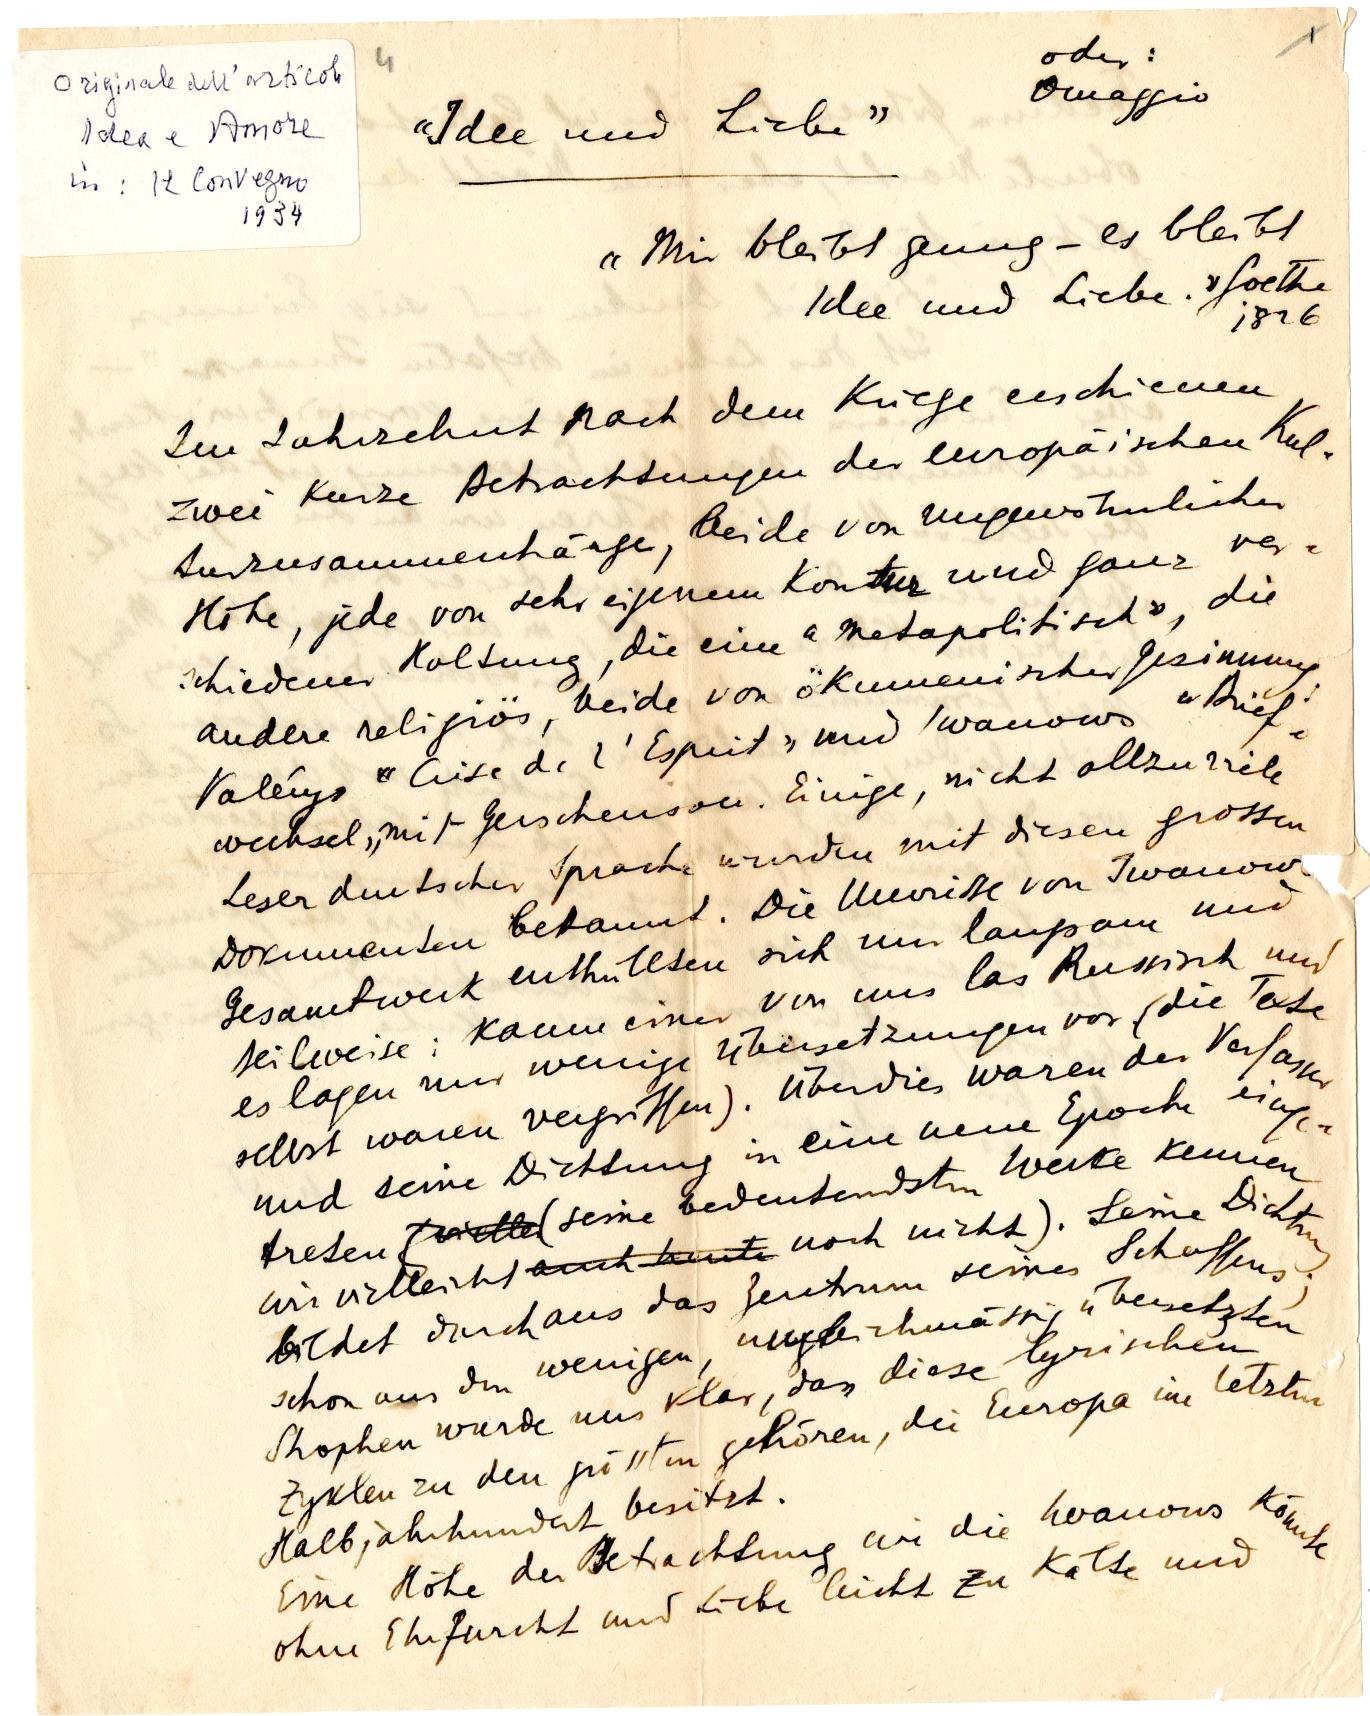 Originale dell'articolo
Idea e Amore
in: Il Convegno
1934
4
1
oder:
Omaggio
"Idee und Liebe"
"Mir bleibt genung – es bleibt
Idee und Liebe." Goethe
1826
Im Jahrzehnt nach dem Kriege erschienen
zwei kurze Betrachtungen der europäischen Kul-
turzusammenhänge, beide von ungewöhnlicher
Höhe, jede von sehr eigenem Kontur und ganz ver-
schiedener Haltung, die eine "metapolitisch", die
andere religiös, beide von ökumenischer Gesinnung:
Valérys "Crise de l'Esprit" und Iwanows "Brief-
wechsel" mit Gerschenson. Einige, nicht allzuviele
Leser deutscher Sprache wurden mit diesen grossen
Dokumenten bekannt. Die Umrisse von Iwanows
Gesamtwerk enthüllten sich nur langsam und
teilweise: kaum einer von uns las Russisch und
es lagen nur wenige Übersetzungen vor (die Texte
selbst waren vergriffen). Überdies waren der Verfasser
und seine Dichtung in eine neue Epoche einge-
treten (seine bedeutendsten Werke kennen
wir vielleicht auch heute noch nicht). Seine Dichtung
bildet durchaus das Zentrum seines Schaffens;
schon aus den wenigen, ungleichmässig übersetzten
Strophen wurde uns klar, dass diese lyrischen
Zyklen zu den grössten gehören, die Europa im letzten
Halbjahrhundert besitzt.
Eine Höhe der Betrachtung wie die Iwanows könnte
ohne Ehrfurcht und Liebe leicht zu Kälte und